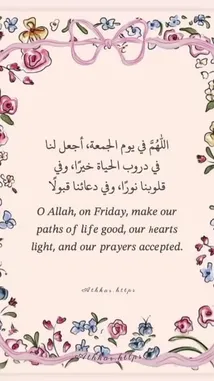 اللّٰهُمَّ في يوم الجمعة، أجعل لنا
في دروب الحياة خيرًا، وفي
قلوبنا نورًا، وفي دعائنا قبولًا
O Allah, on Friday, make our
paths of life good, our hearts
light, and our prayers accepted.
Athkar.https
Athkar.https